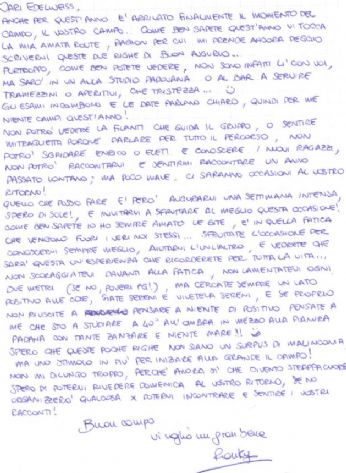 CARI EDELWEISS,
ANCHE PER QUEST'ANNO E' ARRIVATO FINALMENTE IL MOMENTO DEL
CAMPO, IL VOSTRO CAMPO. COME BEN SAPETE QUEST'ANNO VI TOCCA
LA MIA AMATA ROUTE, RAGION PER CUI MI PRENDE ANCORA PEGGIO
SCRIVERVI QUESTE DUE RIGHE DI BUON AUGURIO...
PURTROPPO, COME BEN POTETE VEDERE, NON SONO INFATTI LÌ CON VOI,
MA SARO' IN UN AULA STUDIO PADOVANA O AL BAR A SERVIRE
TRAMEZZINI O APERITIVI, CHE TRISTEZZA...
GLI ESAMI INCOMBONO E LE DATE PARLANO CHIARO, QUINDI PER ME
NIENTE CAMPO QUEST'ANNO!
NON POTRO' VEDERE LA FILANTI CHE GUIDA IL GRUPPO, O SENTIRE
MITRAGLIETTA PORCHE' PARLARE PER TUTTO IL PERCORSO, NON
POTRO' SGRIDARE ENEGIO O ELETI E CONOSCERE I NUOVI RAGAZZI,
NON POTRO' RACCONTARVI E SENTIRVI RACCONTARE UN ANNO
PASSATO LONTANO; MA POCO MALE. CI SARANNO OCCASIONI AL VOSTRO
RITORNO!
QUELLO CHE POSSO FARE E' PERO' AUGURARVI UNA SETTIMANA INTENSA,
SPERO DI SOLE!, E INVITARVI A SFRUTTARE AL MEGLIO QUESTA OCCASIONE!
COME BEN SAPETE IO HO SEMPRE AMATO LE GITE, E' IN QUELLA FATICA
CHE VENGONO FUORI I VERI NOI STESSI... SFRUTTATE L'OCCASIONE PER
CONOSCERVI SEMPRE MEGLIO, AIUTARVI L'UN L'ALTRO, E VEDRETE CHE
SARA' QUESTA UN'ESPERIENZA CHE RICORDERETE PER TUTTA LA VITA...
NON SCORAGGIATEVI DAVANTI ALLA FATICA, NON LAMENTATEVI OGNI
DUE METRI (SE NO, POVERI PG!), MA CERCATE SEMPRE UN LATO
POSITIVO ALLE COSE, SIATE SERENI E VIVETELA SERENI, E SE PROPRIO
NON RIUSCITE A PENSARE A NIENTE DI POSITIVO PENSATE A
ME CHE STO A STUDIARE A 40° ALL'OMBRA IN MEZZO ALLA PIANURA
PADANA CON TANTE ZANZARE E NIENTE MARE!!
SPERO CHE QUESTE POCHE RIGHE NON SIANO UN SURPLUS DI MALINCONIA
MA UNO STIMOLO IN PIU' PER INIZIARE ALLA GRANDE IL CAMPO!
NON MI DILUNGO TROPPO, PERCHE' ANCORA SI' CHE DIVENTO STRAPPALACRIME
SPERO DI POTERVI RIVEDERE DOMENICA AL VOSTRO RITORNO, SE NO
ORGANIZZERO' QUALCOSA X POTERVI INCONTRARE E SENTIRE I VOSTRI
RACCONTI!
Buon campo
vi voglio un gran bene